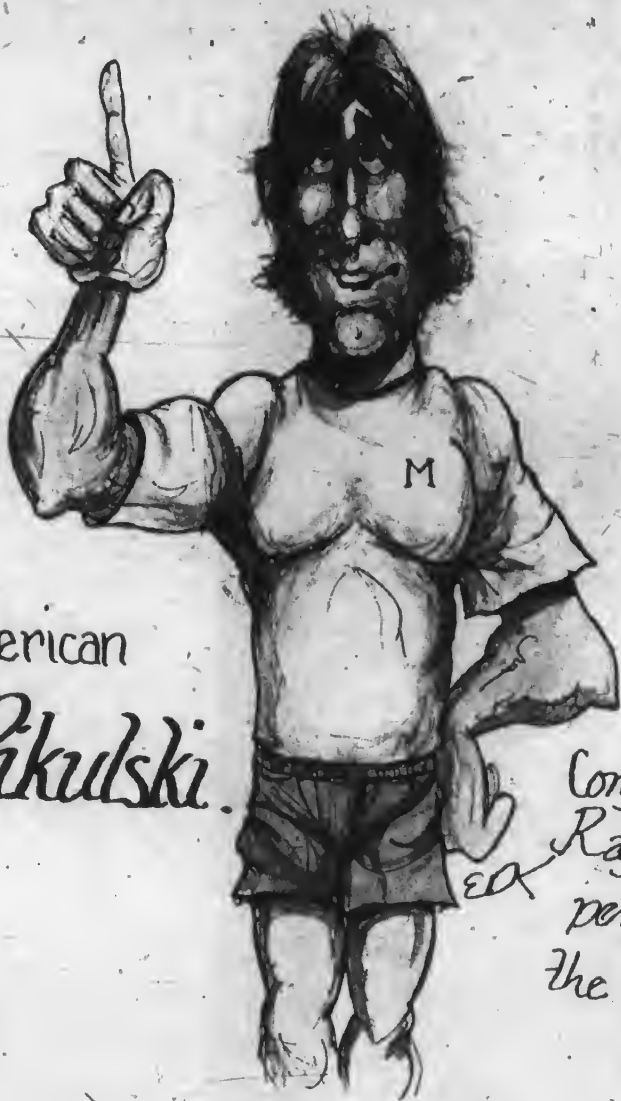 M
erican
Pikulski.
Con
Ra
per
the